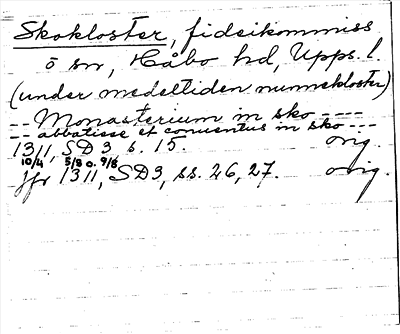 Skokloster, fideikommiss
ö sn, Håbo hd, Upps. l.
(under medeltiden nunnekloster)
-- Monasterium in sko ----
-- abbatisse et conuentus in sko ---
1311, SD 3 s. 15. orig.
10/4 5/8 o. 9/8
jfr 1311, SD 3, ss. 26, 27. orig.